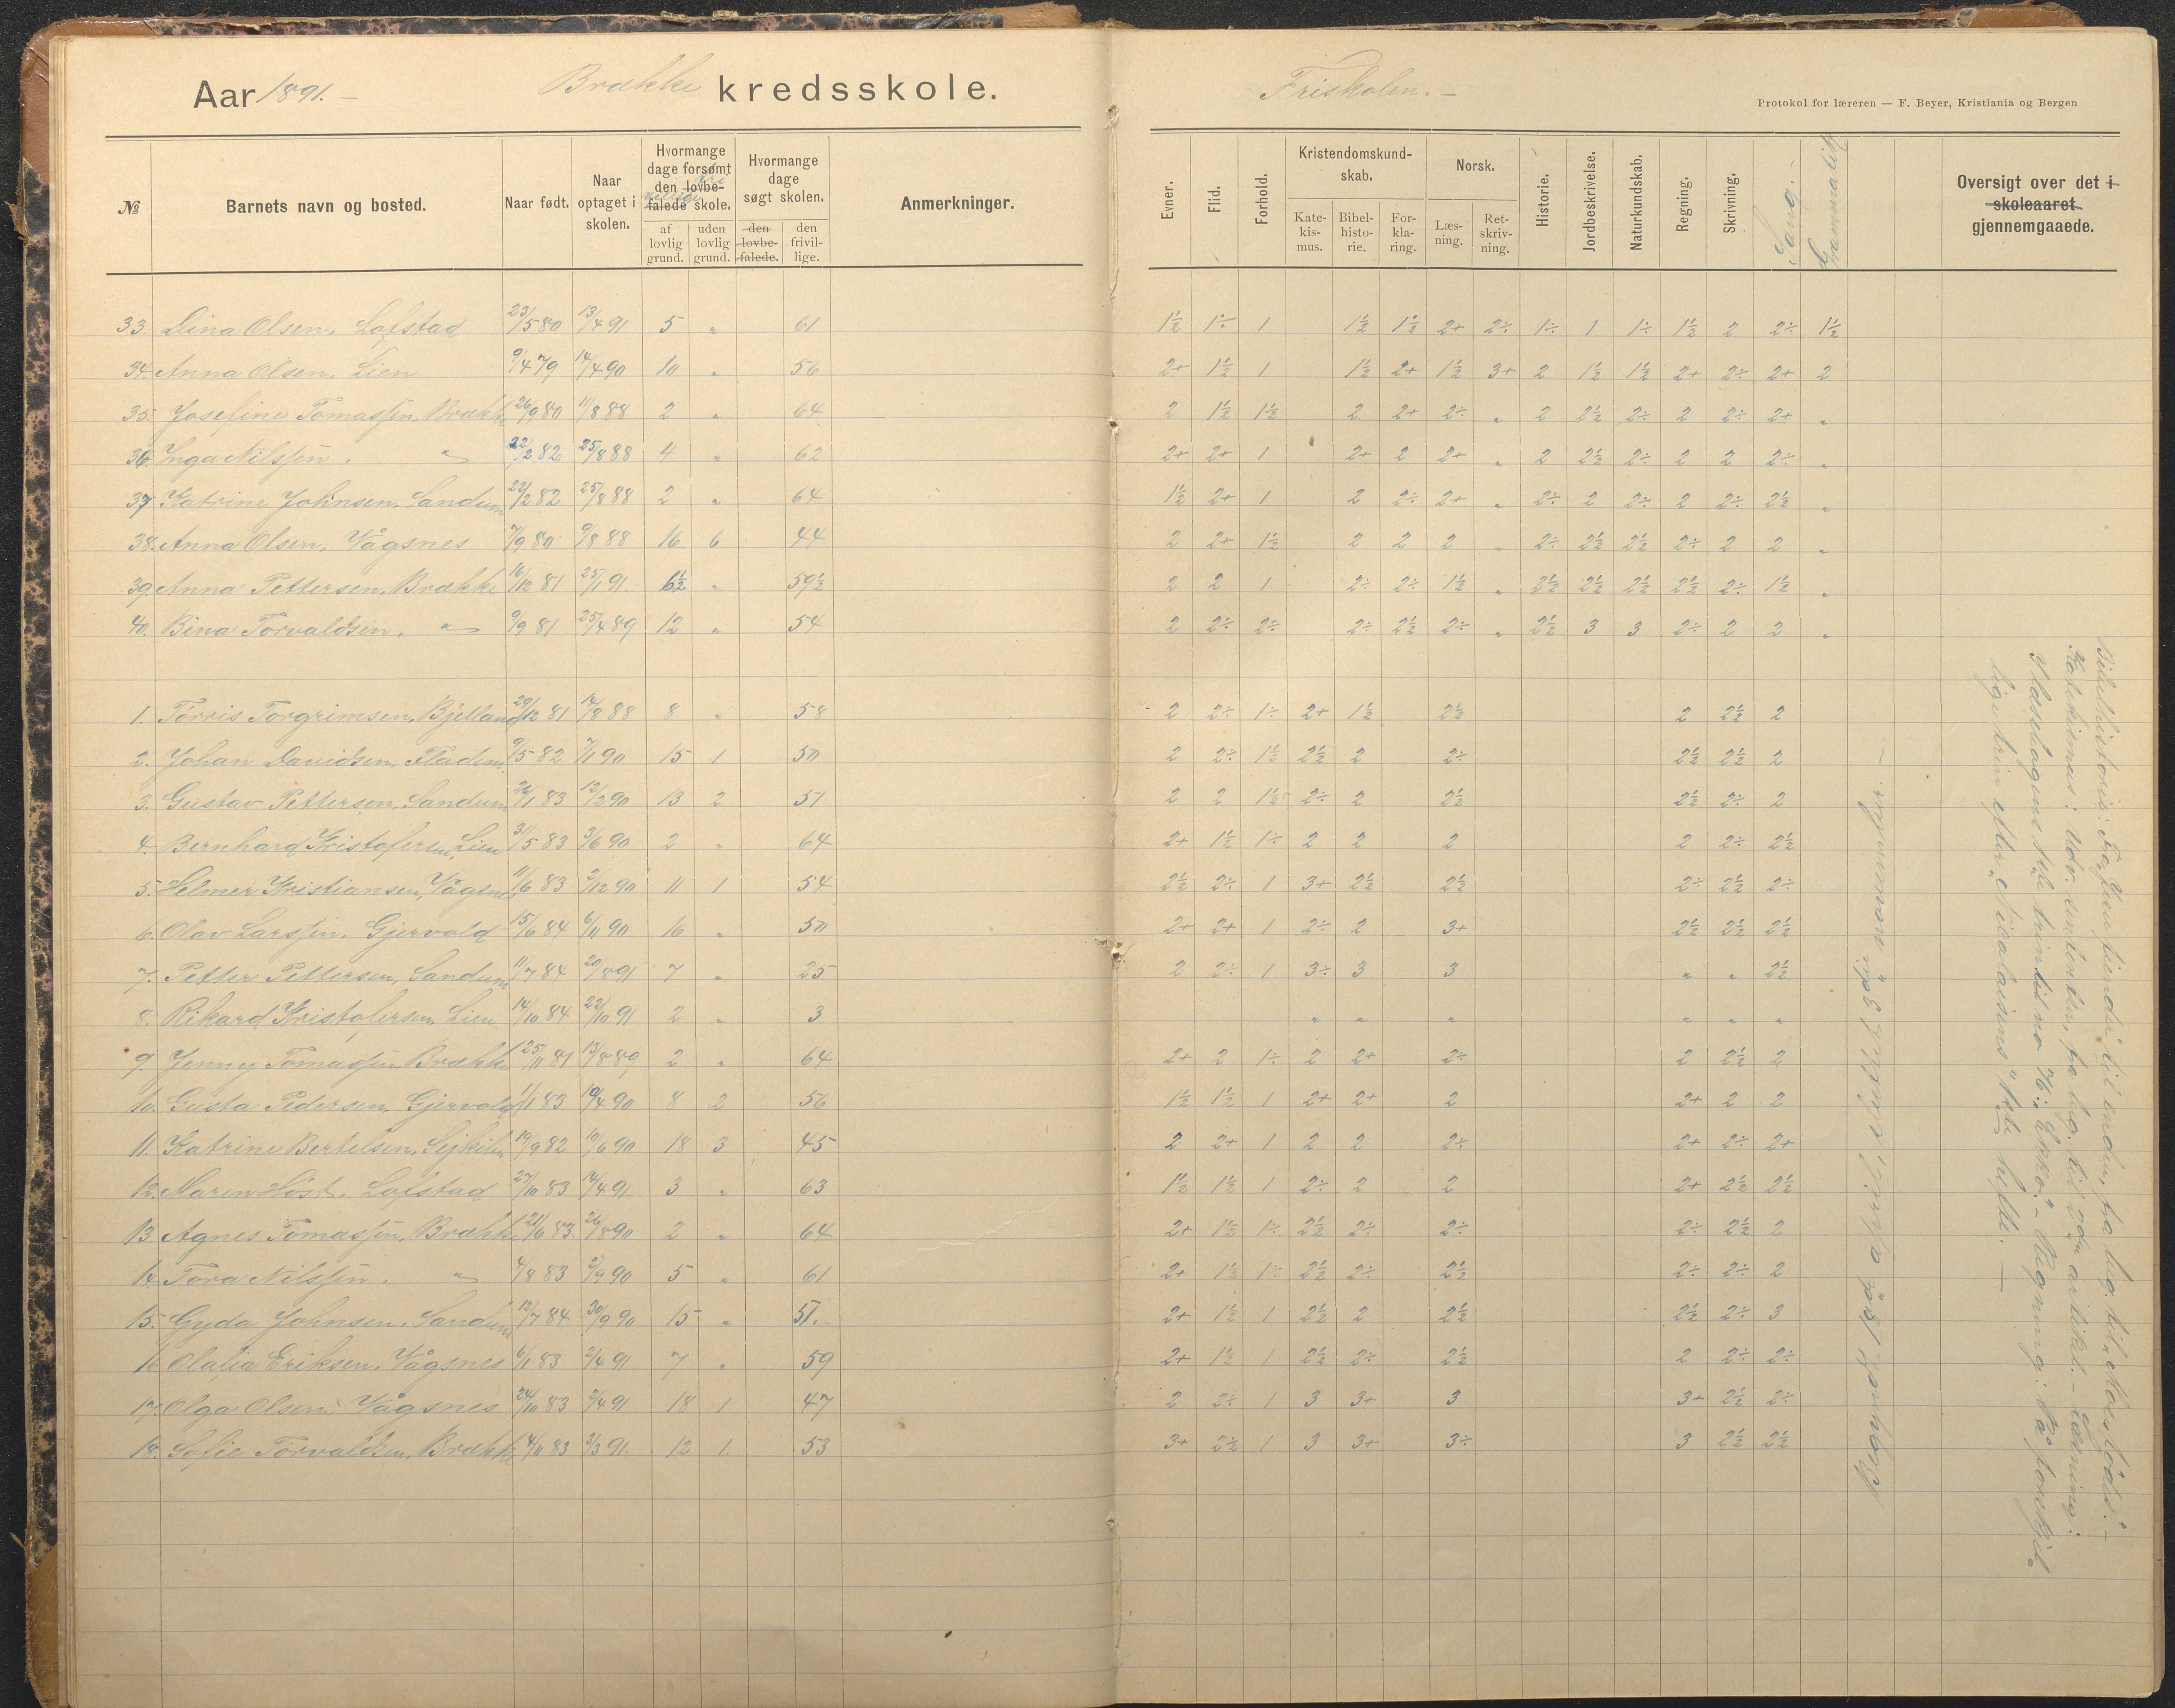 Aar 1891. – Brække kredsskole. Friskolen. –
Protokol for læreren — F. Beyer, Kristiania og Bergen
№ Barnets navn og bosted. Naar født. Naar optaget i skolen. Hvormange dage forsømt den lovbefalede frivillige skole. Hvormange dage søgt skolen. Anmerkninger. Evner. Flid. Forhold. Kristendomskundskab. Norsk. Historie. Jordbeskrivelse. Naturkundskab. Regning. Skrivning. Sang. – Grammatik Oversigt over det i skoleaaret gjennemgaaede.
af lovlig grund. uden lovlig grund. den lovbefalede. den frivillige. Katekismus. Bibelhistorie. Forklaring. Læsning. Retskrivning.
33. Lina Olsen, Lofstad 23/5 80 13/4 91 5 „ 61 1½ 1÷ 1 1½ 1½ 2+ 2÷ 1÷ 1 1÷ 1½ 2 2÷ 1½
34. Anna Olsen, Lien 9/4 79 14/4 90 10 „ 56 2+ 1½ 1 1½ 2+ 1½ 3+ 2 1½ 1½ 2+ 2÷ 2+ 2
35. Josefine Tomassen, Brække 26/9 80 11/8 88 2 „ 64 2 1½ 1½ 2 2+ 2÷ „ 2 2½ 2÷ 2 2÷ 2+ „
36. Inga Nilssen, „ 22/2 82 25/8 88 4 „ 62 2+ 2+ 1 2+ 2 2+ „ 2 2½ 2÷ 2 2 2÷ „
37. Katrine Johnsen, Sandum 22/2 82 25/8 88 2 „ 64 1½ 2+ 1 2 2÷ 2+ „ 2÷ 2 2÷ 2 2÷ 2½ „
38. Anna Olsen, Vågsnes 7/9 80 9/8 88 16 6 44 2 2+ 1½ 2 2 2 „ 2÷ 2½ 2½ 2÷ 2 2 „
39. Anna Pettersen, Brække 16/12 81 25/1 91. 6½ „ 59½ 2 2 1 2÷ 2÷ 1½ „ 2½ 2½ 2½ 2½ 2÷ 1½ „
40. Bina Torvaldsen, „ 9/9 81 25/4 89 12 „ 54 2 2÷ 2÷ 2÷ 2½ 2÷ „ 2½ 3 3 2÷ 2 2 „
1. Tørris Torgrimsen, Bjelland 29/12 81 14/8 88 8 „ 58 2 2÷ 1÷ 2+ 1½ 2½ 2 2½ 2
2. Johan Davidsen, Fladem. 9/5 82 7/1 90 15 1 50 2 2÷ 1½ 2½ 2 2÷ 2½ 2½ 2
3. Gustav Pettersen, Sandum 26/1 83 12/2 90 13 2 51 2 2 1½ 2÷ 2 2½ 2½ 2÷ 2
4. Bernhard Kristofersen, Lien 31/5 83 3/6 90 2 „ 64 2+ 1½ 1÷ 2 2 2 2 2÷ 2½
5. Helmer Kristiansen, Vågsnes 11/6 83 2/12 90 11 1 54 2½ 2÷ 1 3+ 2½ 2½ 2÷ 2½ 2÷
6. Olav Larssen, Gjervold 15/6 84 6/11 90 16 „ 50 2+ 2+ 1 2÷ 2 3+ 2½ 2½ 2½
7. Petter Pettersen, Sandum 11/7 84 20/8 91 7 „ 25 2 2÷ 1 3÷ 3 3 „ „ 2½
8. Rikard Kristofersen, Lien 14/10 84 22/10 91 2 „ 3 „ „ „ „ „ „
9. Jenny Tomassen, Brække 25/11 81 13/8 89 2 „ 64 2+ 2 1÷ 2 2+ 2÷ 2 2½ 2
10. Gusta Pedersen, Gjervold 1/1 83 19/4 90 8 2 56 1½ 1½ 1 2+ 2+ 2 2+ 2 2
11. Katrine Bertelsen, 19/9 82 10/6 90 18 3 45 2 2+ 1 2 2 2÷ 2+ 2÷ 2+
12. Maren Høst, Lofstad 27/10 83 14/4 91 3 „ 63 1½ 1½ 1 2÷ 2 2 2+ 2½ 2½
13. Agnes Tomassen, Brække 21/6 83. 26/8 90 2 „ 64 2+ 1½ 1÷ 2½ 2÷ 2÷ 2÷ 2½ 2
14. Tora Nilssen, „ 4/8 83 2/9 90 5 „ 61 2+ 1½ 1÷ 2½ 2÷ 2½ 2÷ 2÷ 2
15. Gyda Johnsen, Sandum 12/7 84 30/9 90 15 „ 51. 2+ 1½ 1 2½ 2 2½ 2½ 2÷ 3
16. Olalia Eriksen, Vågsnes 6/1 83 2/4 91 7 „ 59 2+ 1½ 1 2½ 2÷ 2½ 2 2÷ 2÷
17. Olga Olsen, Vågsnes 24/10 83 2/4 91 18 1 47 2 2÷ 1 3 3+ 3 3+ 2½ 2÷
18. Sofie Torvaldsen, Brække 4/11 83 3/3 91. 12 1. 53 3+ 2½ 1 3 3+ 3÷ 3 2½ 2½
Bibelhistorie: Fra til enden, fra beg. til „ –
Katekismus: Udv. fra beg. til 2den artikel. – Læsning:
1ste trin til no 76: – Regning: På forskjel
lige trin efter „Nicolaisens“ 1ste hefte. –
Begyndt 18de april, sluttet 3die november. –